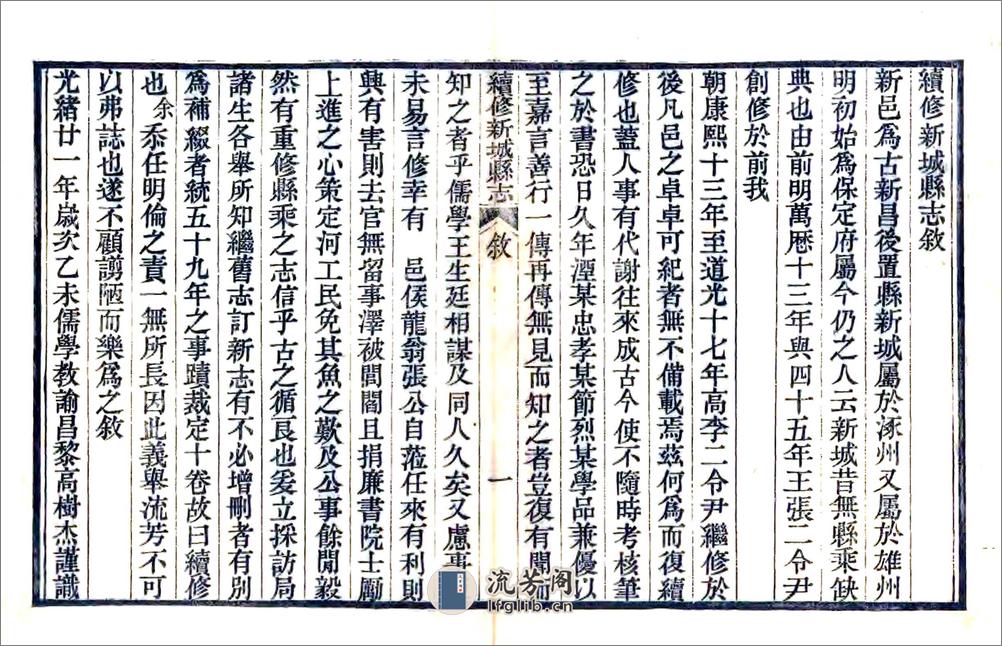 續修新城縣志敘
新邑爲古新昌後置縣新城屬於涿州又屬於雄州
明初始爲保定府屬今仍之人云新城昔無縣乘缺
典也由前明萬曆十三年與四十五年王張二令尹
創修於前我
朝康熙十三年至道光十七年高李二令尹繼修於
後凡邑之卓卓可紀者無不備載焉茲何爲而復續
修也蓋人事有代謝往來成古今使不隨時考核筆
之於書恐日久年湮某忠孝某節烈某學品兼優以
至嘉言善行一傳再傳無見而知之者豈復有聞而
續修新城縣志 敘 一
知之者乎儒學王生廷相謀及同人久矣又慮事
未易言修幸有 邑侯龍翁張公自蒞任來有利則
興有害則去官無留事澤被閭閻且捐廉書院士勵
上進之心策定河工民免其魚之歎及公事餘閒毅
然有重修縣乘之志信乎古之循良也爰立採訪局
諸生各舉所知繼舊志訂新志有不必增刪者有別
爲補綴者統五十九年之事蹟裁定十卷故曰續修
也余忝任明倫之責一無所長因此義舉流芳不可
以弗誌也遂不顧謭陋而樂爲之敘
光緒廿一年歲次乙未儒學教諭昌黎高樹杰謹識
流芳阁
lfglib.cn